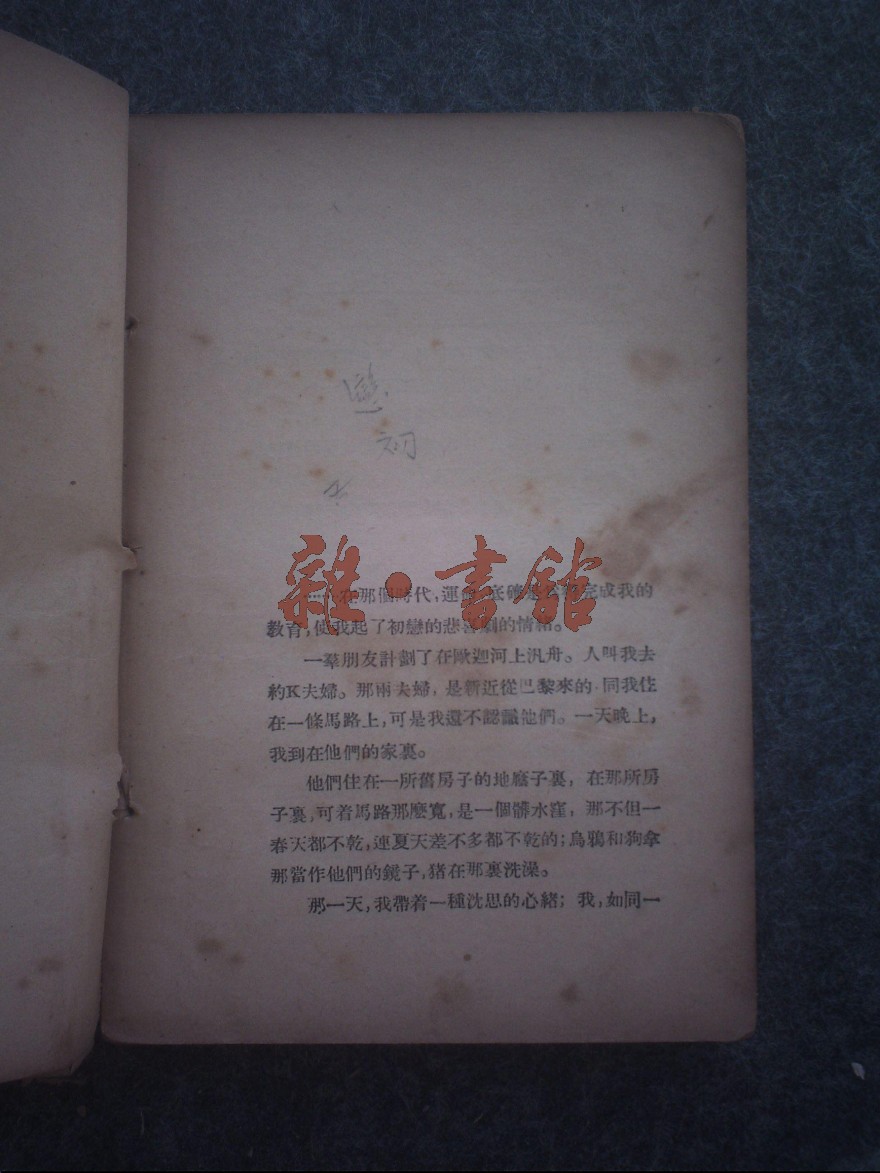 戀
初
雜·書館
……在那個時代，運命底確是爲着完成我的
教育，使我起了初戀的悲喜劇的情緒。
一羣朋友計劃了在歐迦河上汎舟。人叫我去
約K夫婦。那兩夫婦，是新近從巴黎來的，同我住
在一條馬路上，可是我還不認識他們。一天晚上，
我到在他們的家裏。
他們住在一所舊房子的地廕子裏，在那所房
子裏，可着馬路那麽寬，是一個髒水窪，那不但一
春天都不乾，連夏天差不多都不乾的；烏鴉和狗拿
那當作他們的鏡子，猪在那裏洗澡。
那一天，我帶着一種沈思的心緒；我，如同一